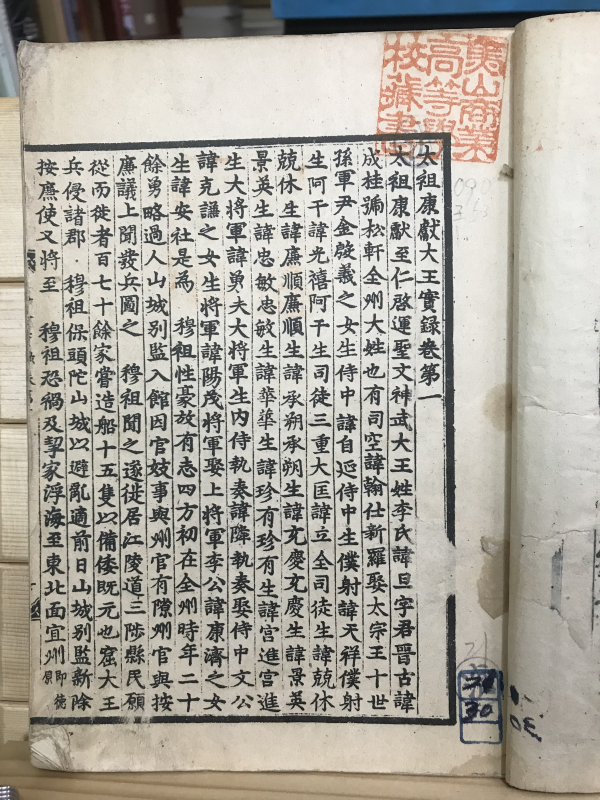 山商業
高等學
校藏書
太祖康獻大王實錄卷第一
太祖康獻至仁啓運聖文神武大王姓李氏諱旦字君晉古諱
成桂號松軒全州大姓也有司空諱翰仕新羅娶太宗王十世
孫軍尹金殷義之女生侍中諱自延侍中生僕射諱天祥僕射
生阿干諱光禧阿干生司徒三重大匡諱立全司徒生諱兢休
兢休生諱廉順廉順生諱承朔承朔生諱充慶充慶生諱景英
景英生諱忠敏忠敏生諱華華生諱珍有珍有生諱宮進宮進
生大將軍諱勇夫大將軍生內侍執奏諱隣執奏娶侍中文公
諱克謙之女生將軍諱陽茂將軍娶上將軍李公諱康濟之女
生諱安社是爲 穆祖性豪放有志四方初在全州時年二十
餘勇略過人山城別監入館因官妓事與州官有隙州官與按
廉議上聞發兵圖之 穆祖聞之遂徙居江陵道三陟縣民願
從而徙者百七十餘家嘗造船十五隻以備倭旣元也窟大王
兵侵諸郡 穆祖保頭陀山城以避亂適前日山城別監新除
按廉使又將至 穆祖恐禍及挈家浮海至東北面宜州 即德原
30